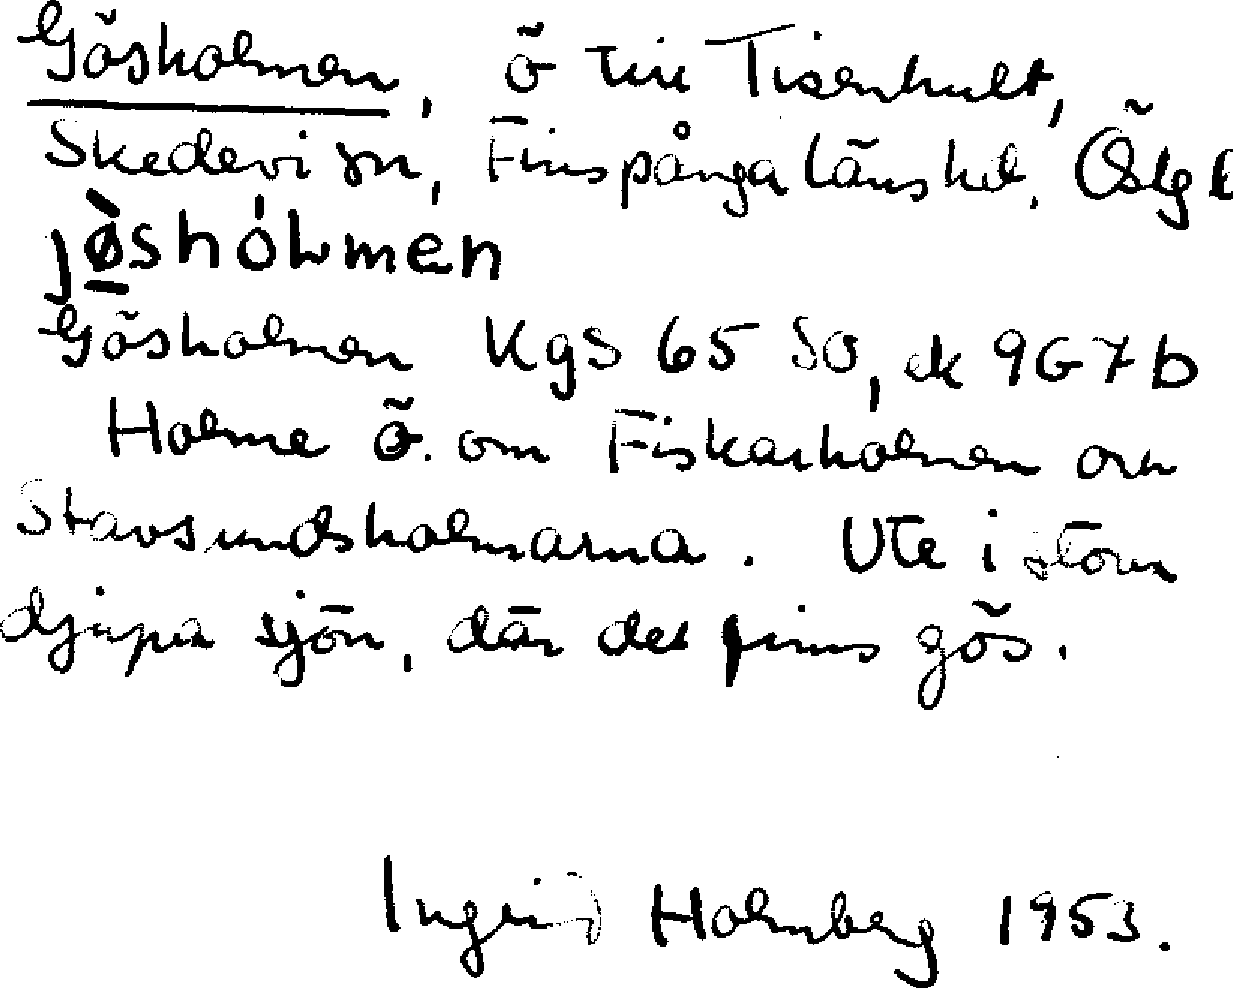 Gösholmen, ö till Tisenhult,
Skedevi sn, Finspånga läns hd. Östg l
jøsholmen
Gösholmen Kgs 65 SO, ek 9G7b
Holme ö. om Fiskarholmen om
Stavsundsholmarna. Ute i stora
djupa sjön, där det finns gös.
Ingrid Holmberg 1953.